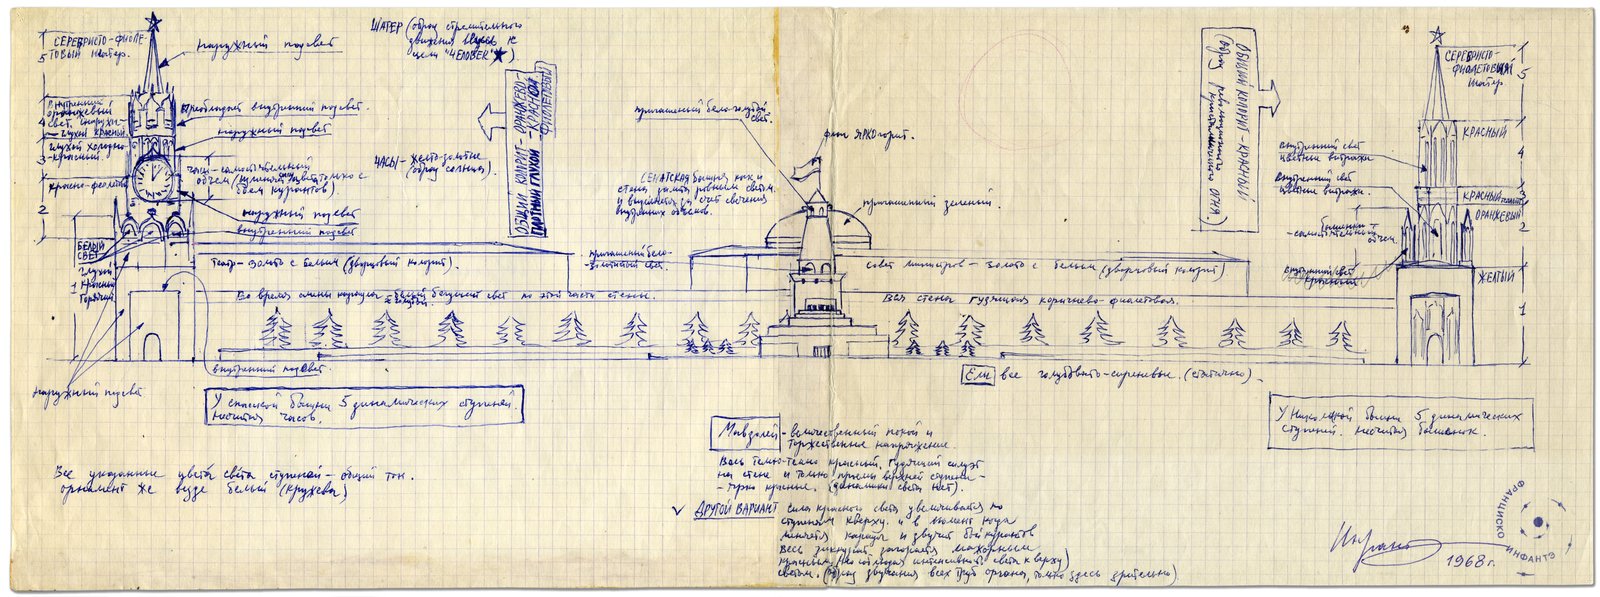 СЕРЕБРИСТО-ФИОЛЕ-
ТОВЫЙ шатер.
5
наружный подсвет
ШАТЕР (образ стремительного
движения ввысь к
цели "ЧЕЛОВЕК" ★)
Внутренний
оранжевый
свет, снаружи
— глухой красный.
4
глухой холодно-
красный
3
красно-фиолет
2
преобладает внутренний подсвет.
наружный подсвет
часы - самостоятельный
объем
с
боем курантов).
ЧАСЫ - жесто-золотые
(образ солнца).
наружный подсвет
внутренний подсвет
БЕЛЫЙ
СВЕТ
глухой
1 красный
горячий.
ОБЩИЙ КОЛОРИТ - ОРАНЖЕВО-
ПАРТНИЙ ГЛУХОЙ - КРАСНЫЙ
ФИОЛЕТОВЫЙ
приглашенный бело-голубой
свет.
флаг ЯРКО горит.
СЕНАТСКАЯ башня как и
стена залита ровным светом.
и выделяется за счет свечения
внутренних объемов.
приглашенный зеленый.
приглашенный бело-
золотистый свет.
Театр - золото с белым (дворцовый колорит).
совет министров - золото с белым (дворцовый колорит)
Во время смены караула белый бегущий свет по этой части стены.
Вся стена гудящая коричнево-фиолетовая.
внутренний подсвет.
наружный подсвет
ОБЩИЙ КОЛОРИТ КРАСНЫЙ
(образ революционного
кристаллического огня)
СЕРЕБРИСТО-
ФИОЛЕТОВЫЙ
шатер.
5
КРАСНЫЙ
4
внутренний свет
цветные витражи
внутренний свет
цветные витражи.
КРАСНЫЙ
3
ОРАНЖЕВЫЙ
2
башенки -
- самостоятельный
объем.
внутренний свет
красный
ЖЕЛТЫЙ
1
Ели все голубовато-сиреневые. (статично)
У спасской башни 5 динамических ступеней.
несчитая часов.
У Никольской башни 5 динамических
ступеней. несчитая башенок.
Все указанные цвета света ступеней - общий тон.
орнамент же везде белый (кружева)
Мавзолей - величественный покой и
торжественное напряжение.
Весь темно-темно красный. Гудящий силуэт
на стене и только проемы верхней ступени -
- ярко красные. (динамики света нет).
✓ ДРУГОЙ ВАРИАНТ сила красного света увеличивается по
ступеням кверху. и в момент когда
меняется караул и звучит бой курантов
весь зиккурат загорается мажорным
красным (но соблюдая интенсивность света к верху)
светом. (образ звучания всех труб органа, только здесь зрительно)
Инфантэ
1968 г.
ФРАНЦИСКО ИНФАНТЭ